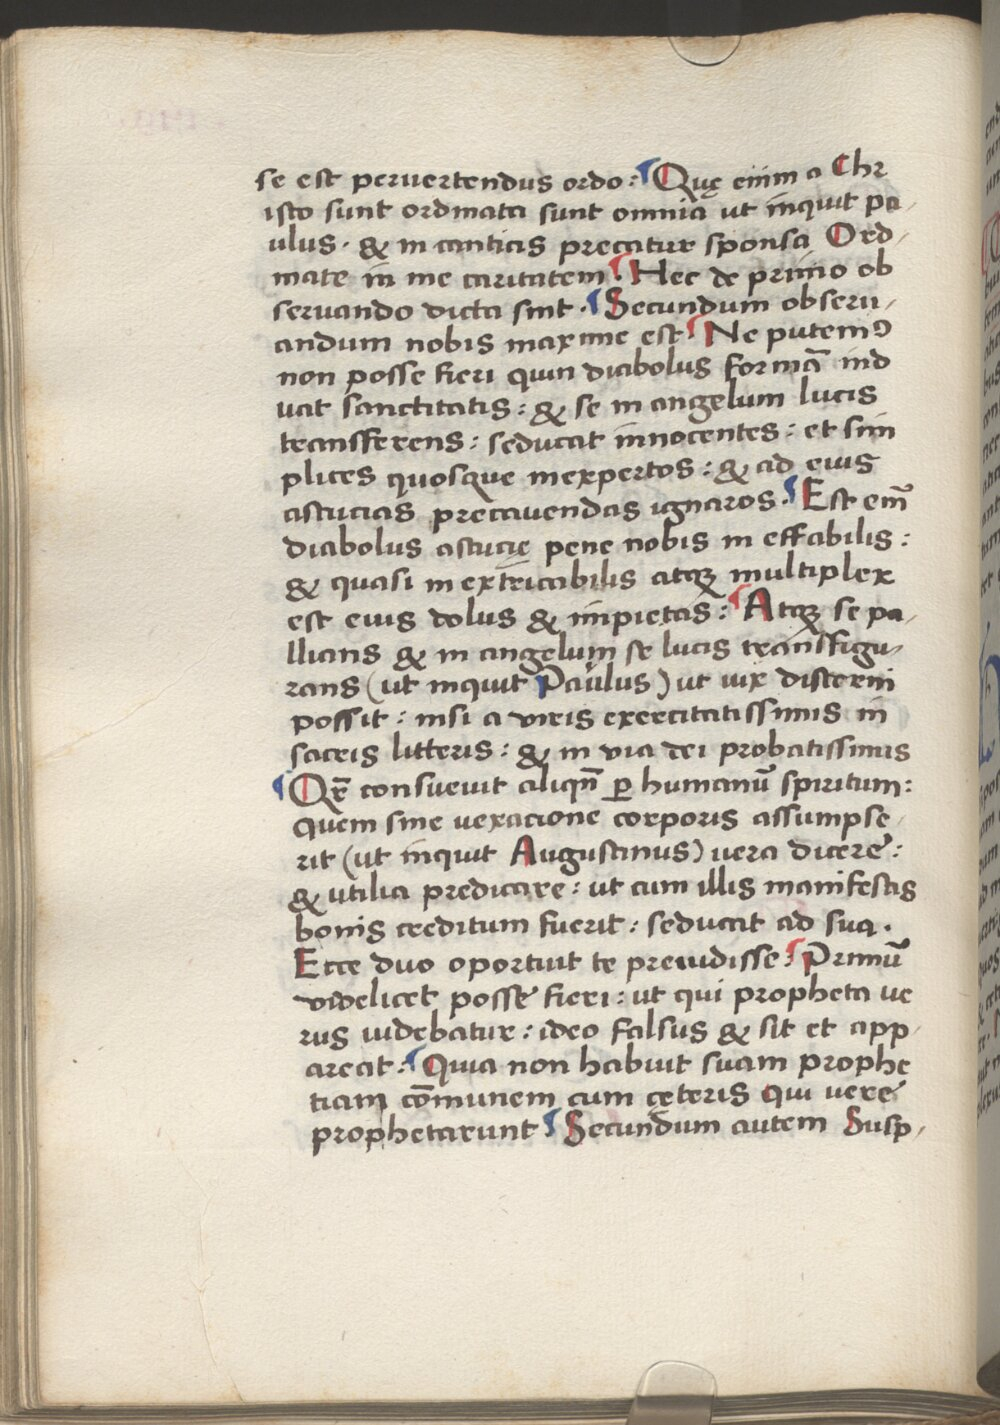 se est peruertendus ordo: ¶ Quę enim a Chr
isto sunt ordinata sunt omnia ut inquit pa-
ulus. & in canticis precatur sponsa Ord-
inate in me caritatem. ¶ Hec de primo ob
seruando dicta sint. ¶ Secundum obseru-
andum nobis maxime est ¶ Ne putemꝯ
non posse fieri quin diabolus formā ind
uat sanctitatis: & se in angelum lucis
transfferens: seducat innocentes: et sim
plices quosque inexpertos: & ad eius
astucias precauendas ignaros. ¶ Est em̄
diabolus astucię pene nobis in effabilis:
& quasi in extricabilis atqꝫ multiplex
est eius dolus & impietas: ¶ Atqꝫ se pa-
llians & in angelum se lucis transffigu-
rans (ut inquit Paulus) ut uix discerni
possit: nisi a viris exercitatissimis in
sacris litteris: & in via dei probatissimis
¶ Qr̄ consueuit aliqn̄ ꝑ humanū spiritum:
quem sine uexacione corporis assumpse-
rit (ut inquit Augustinus) uera dicere:
& utilia predicare: ut cum illis manifestis
bonis creditum fuerit: seducat ad sua.
Ecce duo oportuit te preuidisse: ¶ Primū
videlicet posse fieri: ut qui propheta ue
rus uidebatur: ideo falsus & sit et app-
areat: ¶ Quia non habuit suam prophe
tiam cōmunem cum ceteris qui uere
prophetarunt ¶ Secundum autem Susp-